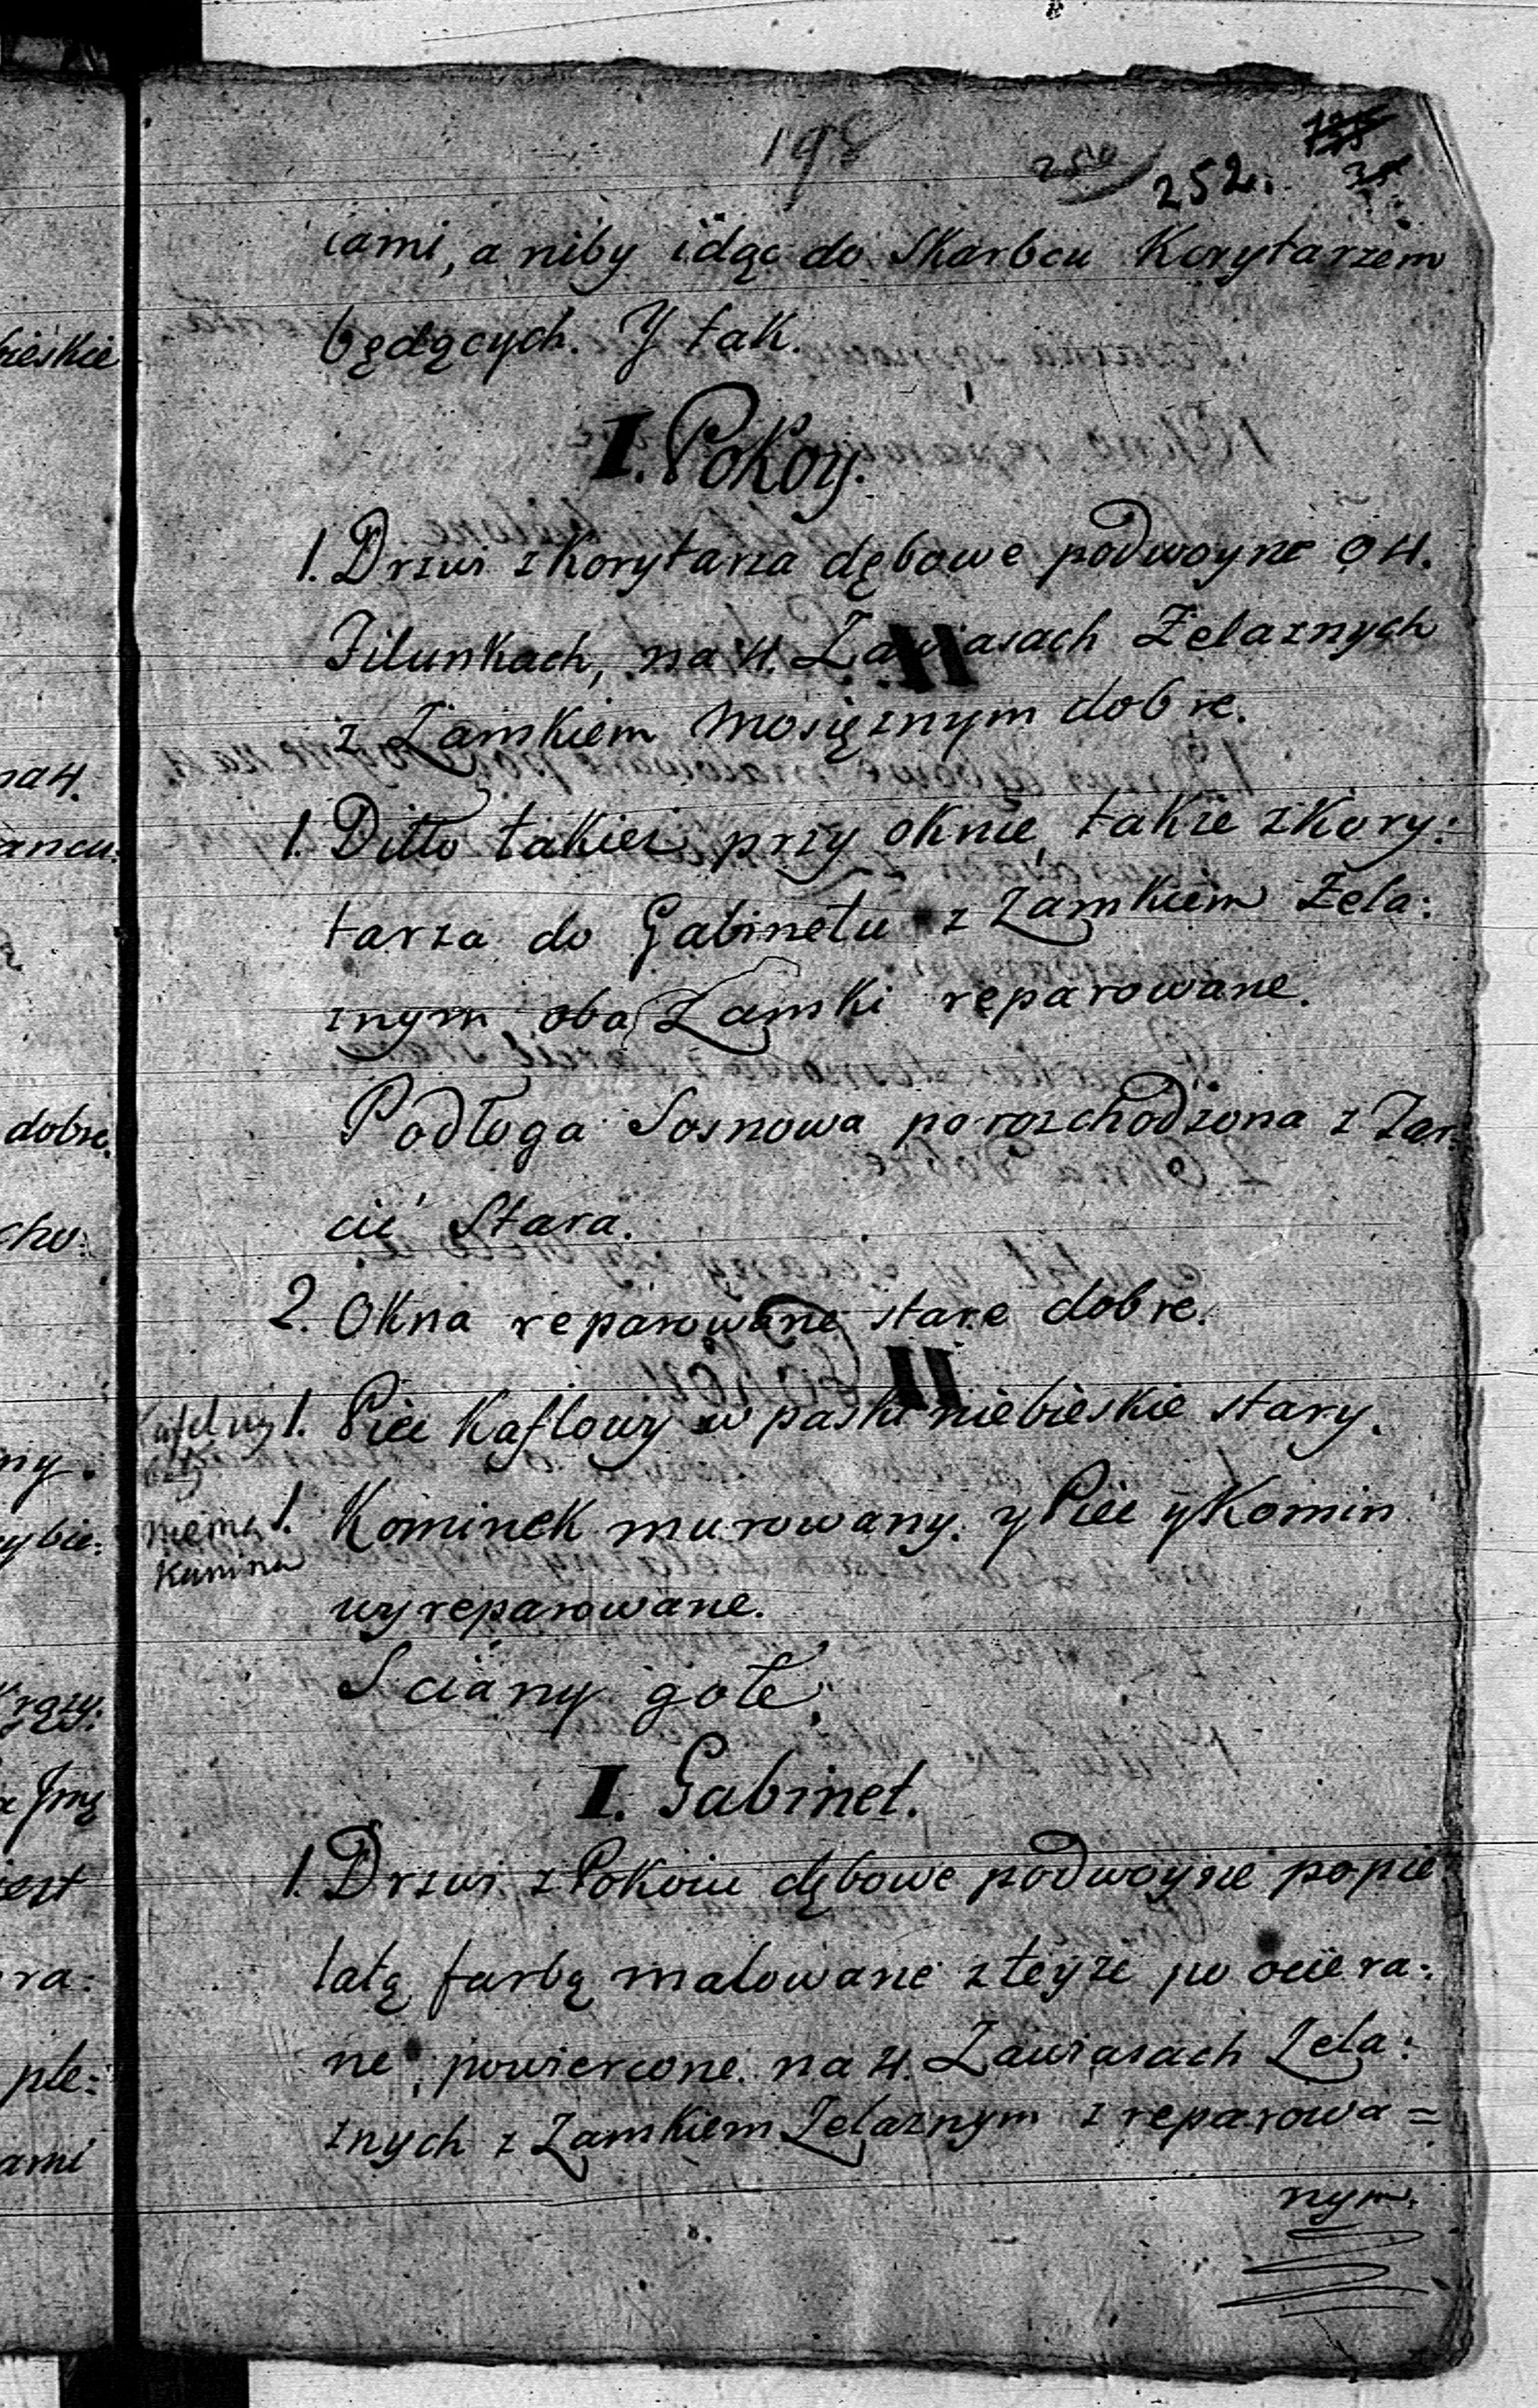 198
250 252.
ciami, a niby idąc do Skarbcu Korytarzem
będących. Y tak.
I. Pokoy.
1. Drzwi z Korytarza dębowe podwoyne o 4.
Filunkach, na 4. Zawiasach Żelaznych
z Zamkiem Mosięznym dobre.
1. Ditto takież przy oknie, także z Kory:
tarza do Gabinetu z Zamkiem Żela:
znym, oba Zamki reparowane.
Podłoga Sosnowa porozchodzona z Tar
cić Stara.
2. Okna reparowane stare dobre.
1. Piec Kaflowy w paski niebieskie stary.
Kafelny
niema
Kumina
1. Kominek murowany. y Piec y Komin
wyreparowane.
Sciany gołe.
I. Gabinet.
1. Drzwi z Pokoiu dębowe podwoyne popie
latą farbą malowane z teyże poociera:
ne, powiercone. na 4. Zawiasach Żela:
znych z Zamkiem Żelaznym z reparowa=
nym.
bieskie
na 4.
ancu:
dobre.
cho:
ny.
ybie:
iest
ra:
ple:
ami